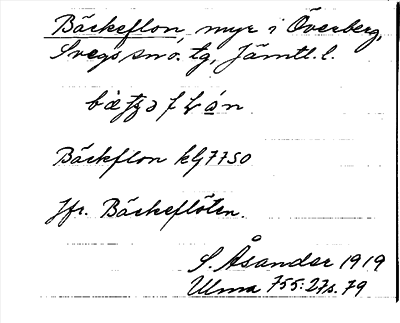 Bäckeflon, myr i Överberg,
Svegs sn o. tg, Jämtl. l.
Bäckflon kG7750
Jfr. Bäckeflöten.
S. Åsander 1919
Ulma 755:27 s. 79